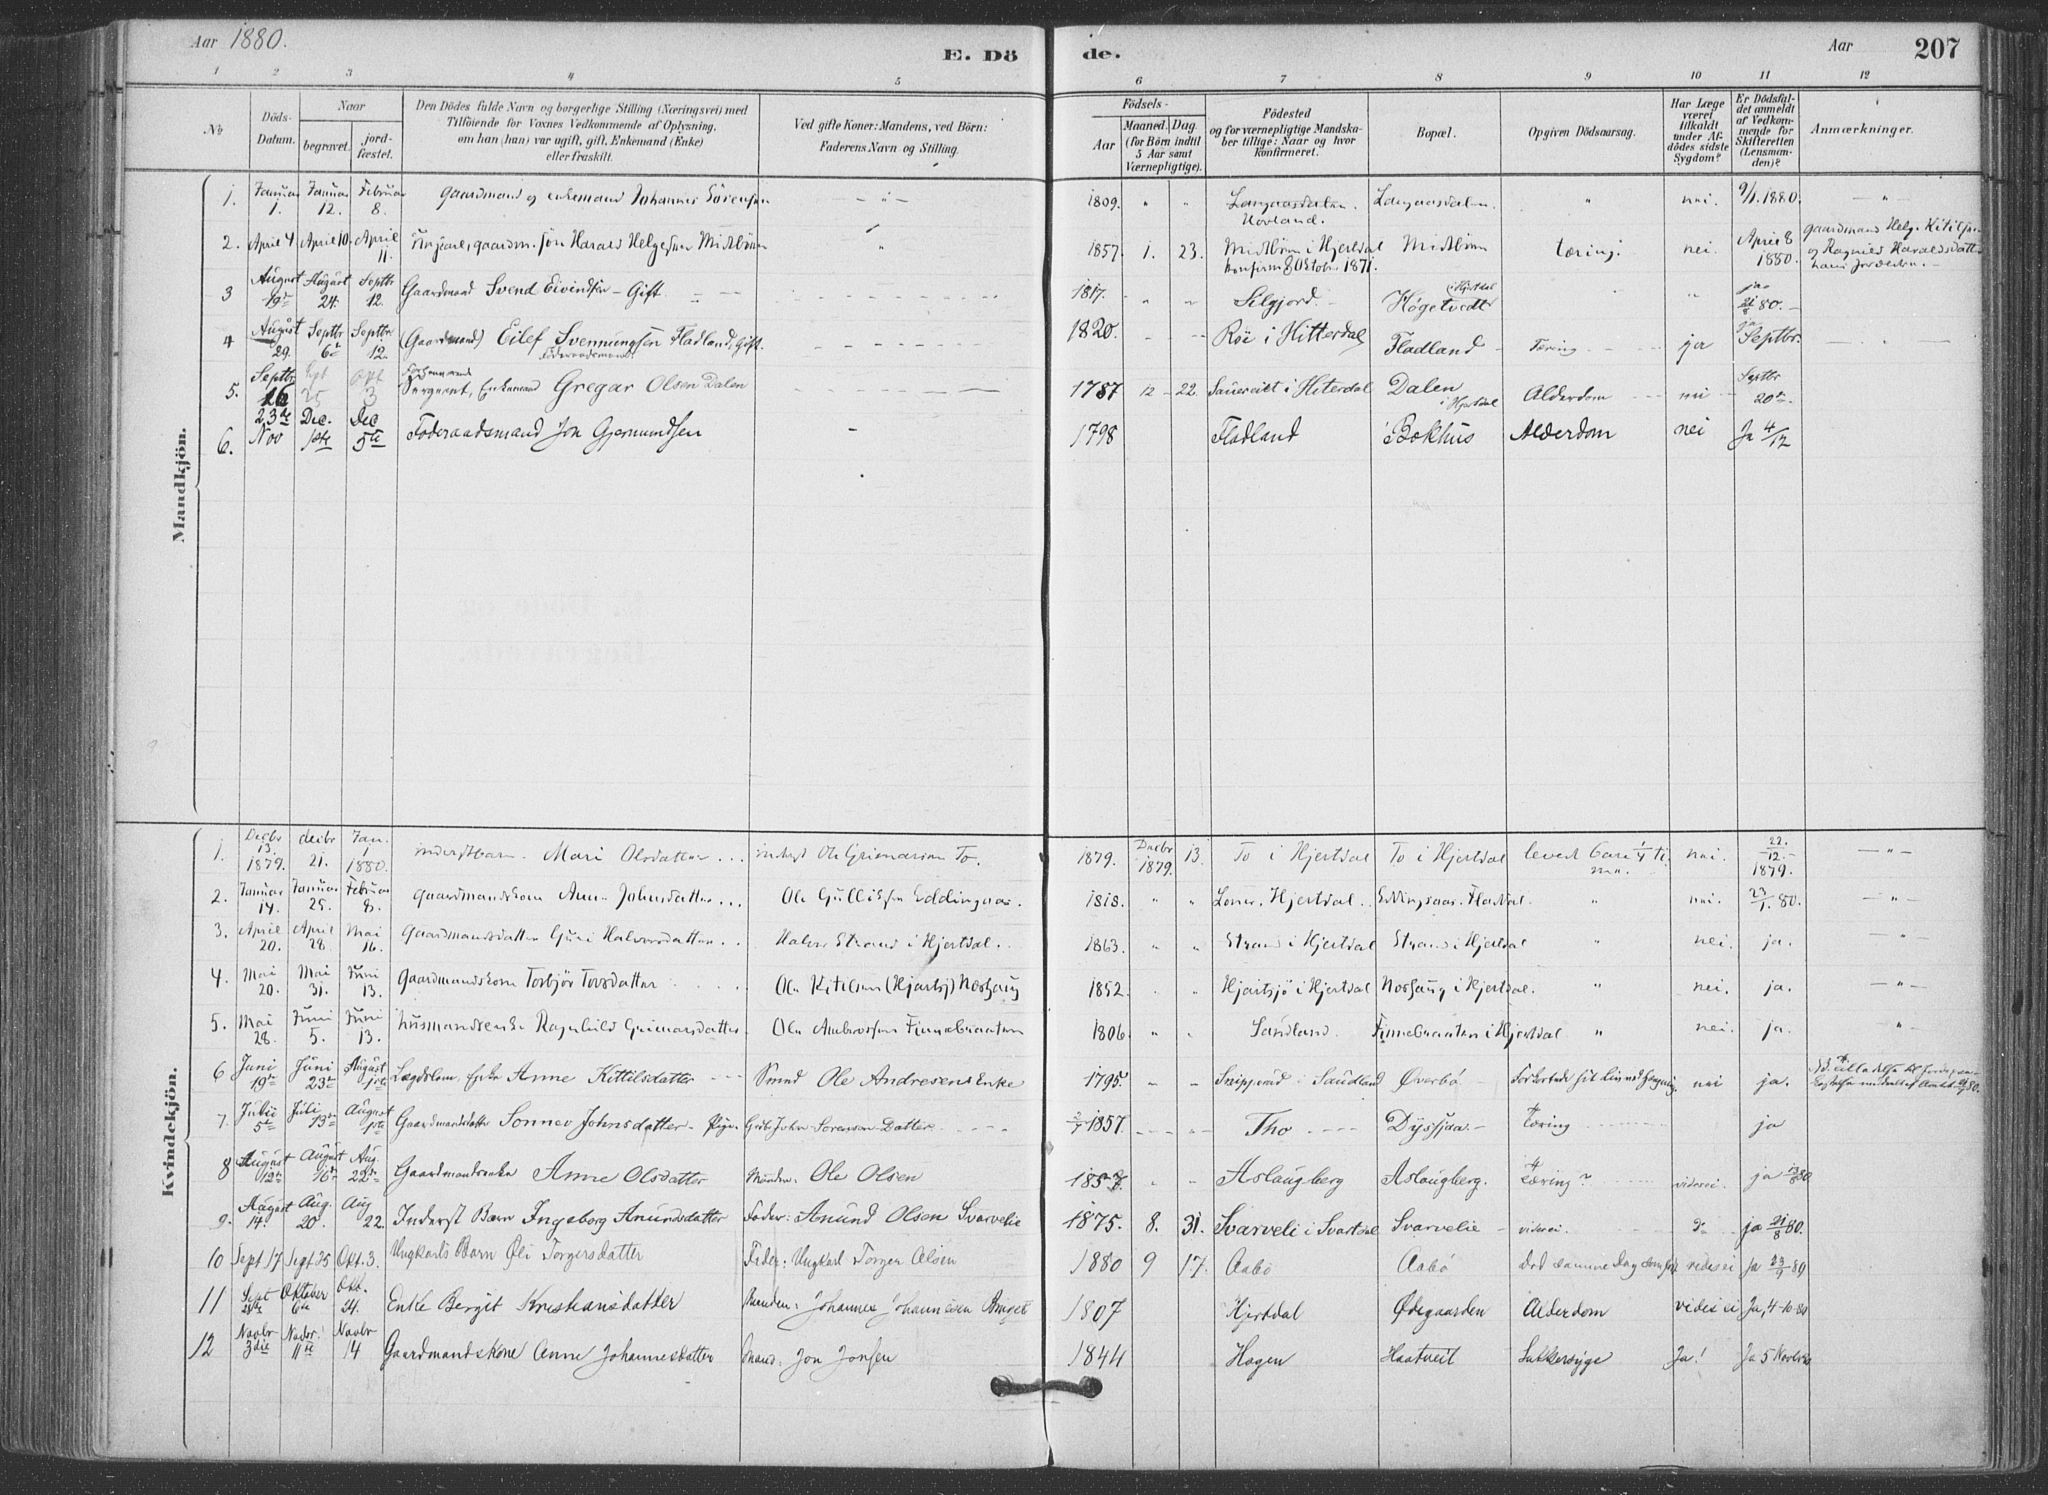 Aar 1880.
E. Dö
de.
Aar
207
1 2 3 4 5 6 7 8 9 10 11 12
No
Döds-
Datum.
Naar
begravet.
jord-
fæstet.
Den Dödes fulde Navn og borgerlige Stilling (Næringsvei) med
Tilföiende for Voxnes Vedkommende af Oplysning,
om han (hun) var ugift, gift, Enkemand (Enke)
eller fraskilt.
Ved gifte Koner: Mandens, ved Börn:
Faderens Navn og Stilling.
Födsels-
Aar
Maaned. Dag.
(for Börn indtil
5 Aar samt
Værnepligtige).
Födested
og for værnepligtige Mandska-
ber tillige: Naar og hvor
konfirmeret.
Bopæl.
Opgiven Dödsaarsag.
Har Læge
været
tilkaldt
under Af-
dödes sidste
Sygdom?
Er Dödsfal-
det anmeldt
af Vedkom-
mende for
Skifteretten
(Lensman-
den)?
Anmærkninger.
Mandkjön.
1. Januar 1. Januar 12. Februar 8. gaardmand og enkemand Johannes Sörensen 1809. Langaasdalen. Hovland. Langaasdalen. nei. 9/1. 1880.
2. April 4 April 10 April 11. Ungkarl, gaardm. sön Harald Helgesen Midtbøen 1857. 1. 23. Midtbøen i Hjertdal Konfirm 8 Oktob. 1871. Midtbøen tæring. nei April 8 1880. gaardmand Helg. Kitilsen og Ragnild Haraldsdatter hans forældre.
3 August 19de August 24. Septbr 12. Gaardmand Svend Eivindsen - Gift. 1817. Silgjord Høgetvedt i Hjertdal ja 80.
4 August 29. Septbr 6te Septbr 12. (Gaardmand) Eilef Svennungsen Fladland, Gift. Föderaadsmand 1820. Röe i Hitterdal Fladland Tæring ja ja Septbr.
5. Septbr 16 Sept 25 Okt 3 Forhenværende Sergeant, Enkemand Gregar Olsen Dalen 1787 12 22 Sauereidt i Hiterdal Dalen i Hjertdal Alderdom nei Septbr 20de
6. 23de Nov Dec. 1ste Dec 5te Föderaadsmand Jon Gjermundsen 1798 Fladland Bekhus Alderdom nei Ja 4/12
Kvindekjön.
1. Decbr 13. 1879. decbr 21. Jan. 1 1880. inderstbarn. Mari Olsdatter inderst Ole Grimarsen To. 1879. Decbr 1879. 13. To i Hjertdal To i Hjertdal levede bare 1/4 ti me. nei. 22/12 1879.
2. Januar 14. Januar 25. Februar 8. gaardmandskone Anne Johnsdatter Ole Gulliksen Eddingsaas. 1818. Löner. Hjertdal. Eddingsaas. Flatdal. nei. 23/1. 80.
3. April 20. April 28. Mai 16. Gaardmansdatter Guri Halvorsdatter Halvor Strand i Hjertdal. 1863. Strand i Hjertdal Strand i Hjertdal nei. ja.
4. Mai 20. Mai 31. Juni 13. Gaardmandskone Torbjör Torsdatter Ole Kitilsen (Hjartsj) Nordhaug 1852. Hjartsjö i Hjertdal Nordhaug i Hjertdal. nei. ja.
5. Mai 28. Juni 5. Juni 13. husmandsenke Ragnhild Grimarsdatter Ole Ambrossen Finnebraaten 1806. Saudland. Finnebraaten i Hjertdal nei. ja.
6 Juni 19de Juni 23de August 1ste Lægdslem, Enke Anne Kittilsdatter Smed Ole Andresens Enke 1795. Saudland Øverbö nei ja.
7. Juli 5te Juli 13de August 1ste Gaardmandsdatter Sonnev Johnsdatter Pige Grb. John Sorensen Datter 1857. Tho Dyssjaa Tæring ja
8 August 12te August 16de Aug. 22de Gaardmandsenke Anne Olsdatter Manden: Ole Olsen Aslaugberg Aslaugberg. Tæring? vides ei. ja 80
9. August 14. Aug. 20. Aug 22. Inderst Barn Ingeborg Anundsdatter Fader: Anund Olsen Svarvelie 1875. 8. 31. Svarveli i Svartdal Svarvelie vides ei. ja 21/8 80.
10 Sept 17 Sept 25 Okt. 3 Ungkarls Barn Öli Torgersdatter Fader: Ungkarl Torger Olsen 1880 9 17. Aabö Aabö Död samme Dag som födt vides ei Ja 23/9 80
11 Sept Oktober 6te Okt. 24. Enke Bergit Kristiansdatter Manden: Johannes Johannesen 1807 Hjertdal Ødegaarden Alderdom vides ei Ja, 4-10-80
12 Novbr 3die Novbr. 11te Novbr 14 Gaardmandskone Anne Johannesdatter Mand: Jon Jonsen 1844 Hagen Haatveit Sukkersyge Ja! Ja 5 Novbr 80